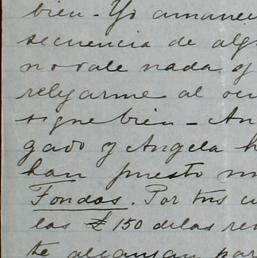 bien - Yo amanec
secuencia de alg
no vale nada y
al
sigue bien - An
gado y Angela h
han puesto m
Fondos. Por tus c
las £150 de las re
te alcanzan par